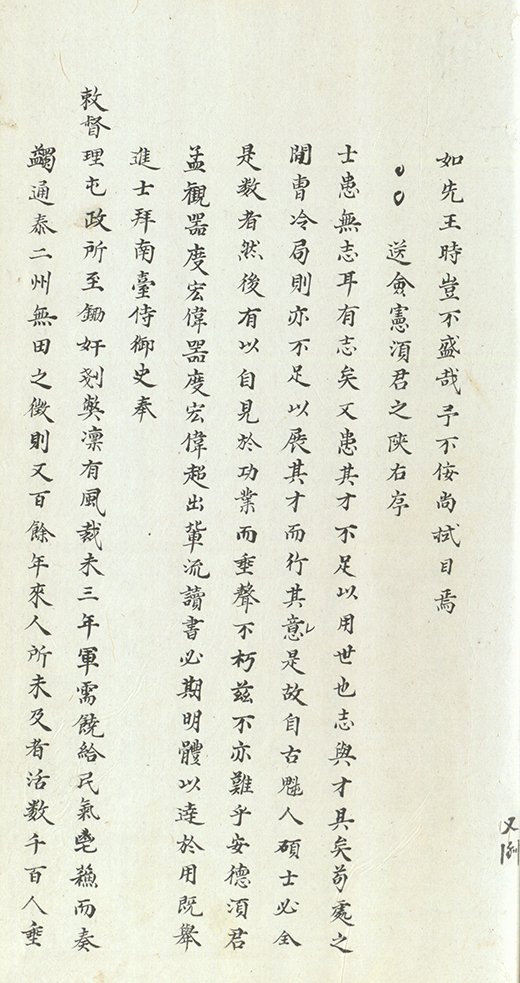 如先王時豈不盛哉予不佞尚拭目焉
送僉憲湏君之陜右序
士患無志耳有志矣又患其才不足以用世也志與才具矣苟處之
閒曹冷局則亦不足以展其才而行其意是故自古魁人碩士必全
是数者然後有以自見於功業而垂聲不朽茲不亦難乎安德湏君
孟觀器度宏偉器度宏偉超出軰流讀書必期明體以逹於用既舉
進士拜南臺侍御史奉
敕督理屯政所至鋤奸剔弊凛有風裁未三年軍需饒給民氣而奏
蠲通泰二州無田之徴則又百餘年來人所未及者活数千百人垂